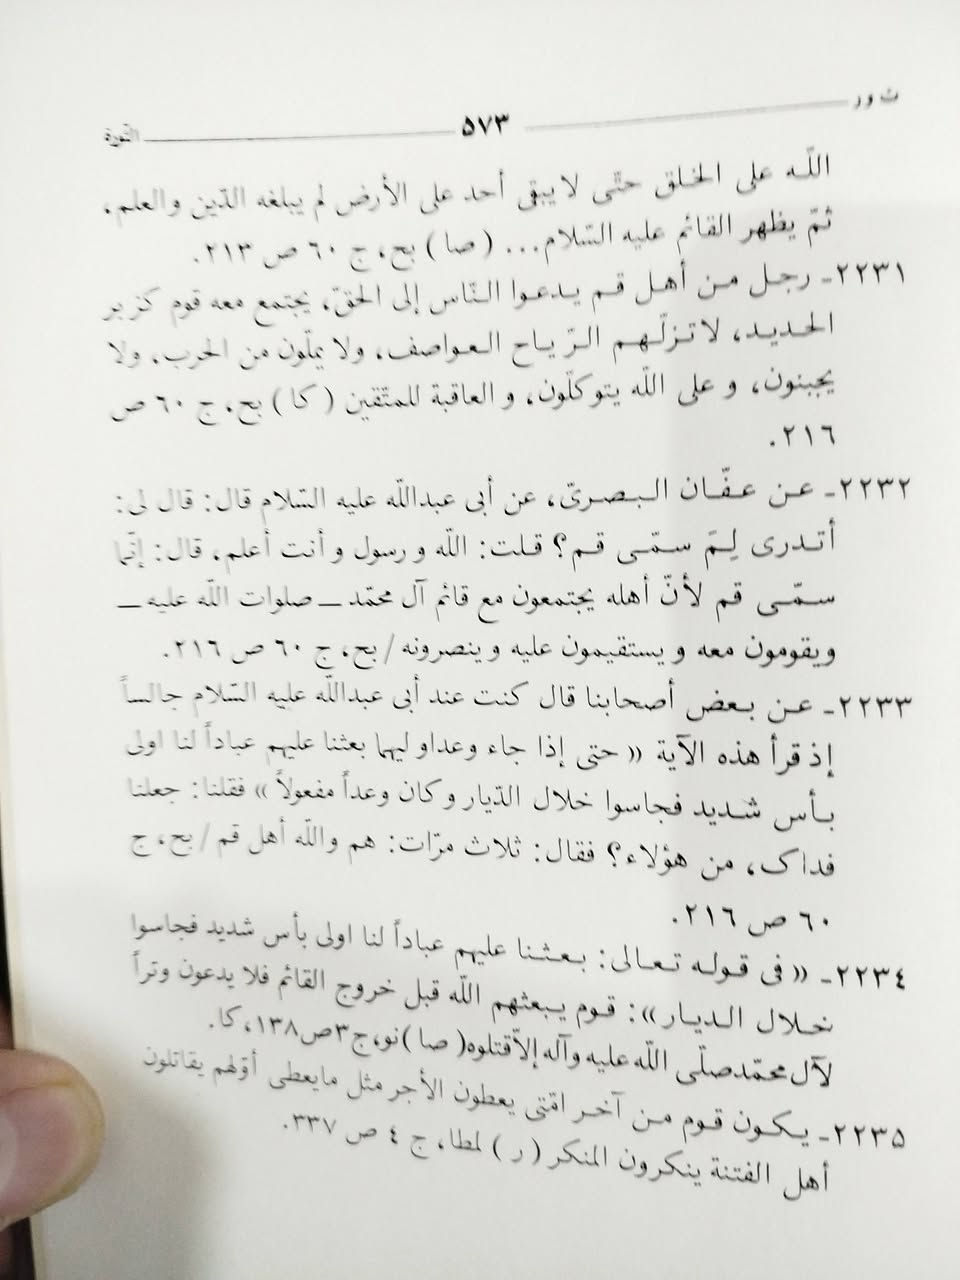 ث ور ٥٧٣ الثورة
اللّه على الخلق حتّى لا يبقى أحد على الأرض لم يبلغه الدّين والعلم،
ثمّ يظهر القائم عليه السّلام... (صا) بح، ج ٦٠ ص ٢١٣.
٢٢٣١ـ رجل من أهل قم يدعوا النّاس إلى الحقّ، يجتمع معه قوم كزبر
الحديد، لا تزلّهم الرّياح العواصف، ولا يملّون من الحرب، ولا
يجبنون، و على اللّه يتوكلّون، و العاقبة للمتّقين (كا) بح، ج ٦٠ ص
٢١٦.
٢٢٣٢ـ عن عفّان البصرىّ، عن أبى عبداللّه عليه السّلام قال: قال لى:
أتدرى لِمَ سمّى قم؟ قلت: اللّه و رسول و أنت أعلم، قال: إنّما
سمّى قم لأنّ أهله يجتمعون مع قائم آل محمّد ــ صلوات اللّه عليه ــ
ويقومون معه و يستقيمون عليه و ينصرونه / بح، ج ٦٠ ص ٢١٦.
٢٢٣٣ـ عن بعض أصحابنا قال كنت عند أبى عبداللّه عليه السّلام جالساً
إذ قرأ هذه الآية «حتى إذا جاء وعداو ليهما بعثنا عليهم عباداً لنا اولى
بأس شديد فجاسوا خلال الدّيار و كان وعداً مفعولاً» فقلنا: جعلنا
فداك، من هؤلاء؟ فقال: ثلاث مرّات: هم واللّه أهل قم / بح، ج
٦٠ ص ٢١٦.
٢٢٣٤ـ «فى قوله تعالى: بعثنا عليهم عباداً لنا اولى بأس شديد فجاسوا
خلال الديار»: قوم يبعثهم اللّه قبل خروج القائم فلا يدعون وتراً
لآل محمّد صلّى اللّه عليه وآله إلاّ قتلوه (صا) نو، ج ٣ ص ١٣٨، كا.
٢٢٣٥ـ يكون قوم من آخر امّتى يعطون الأجر مثل مايعطى أوّلهم يقاتلون
أهل الفتنة ينكرون المنكر (ر) لمطا، ج ٤ ص ٣٣٧.